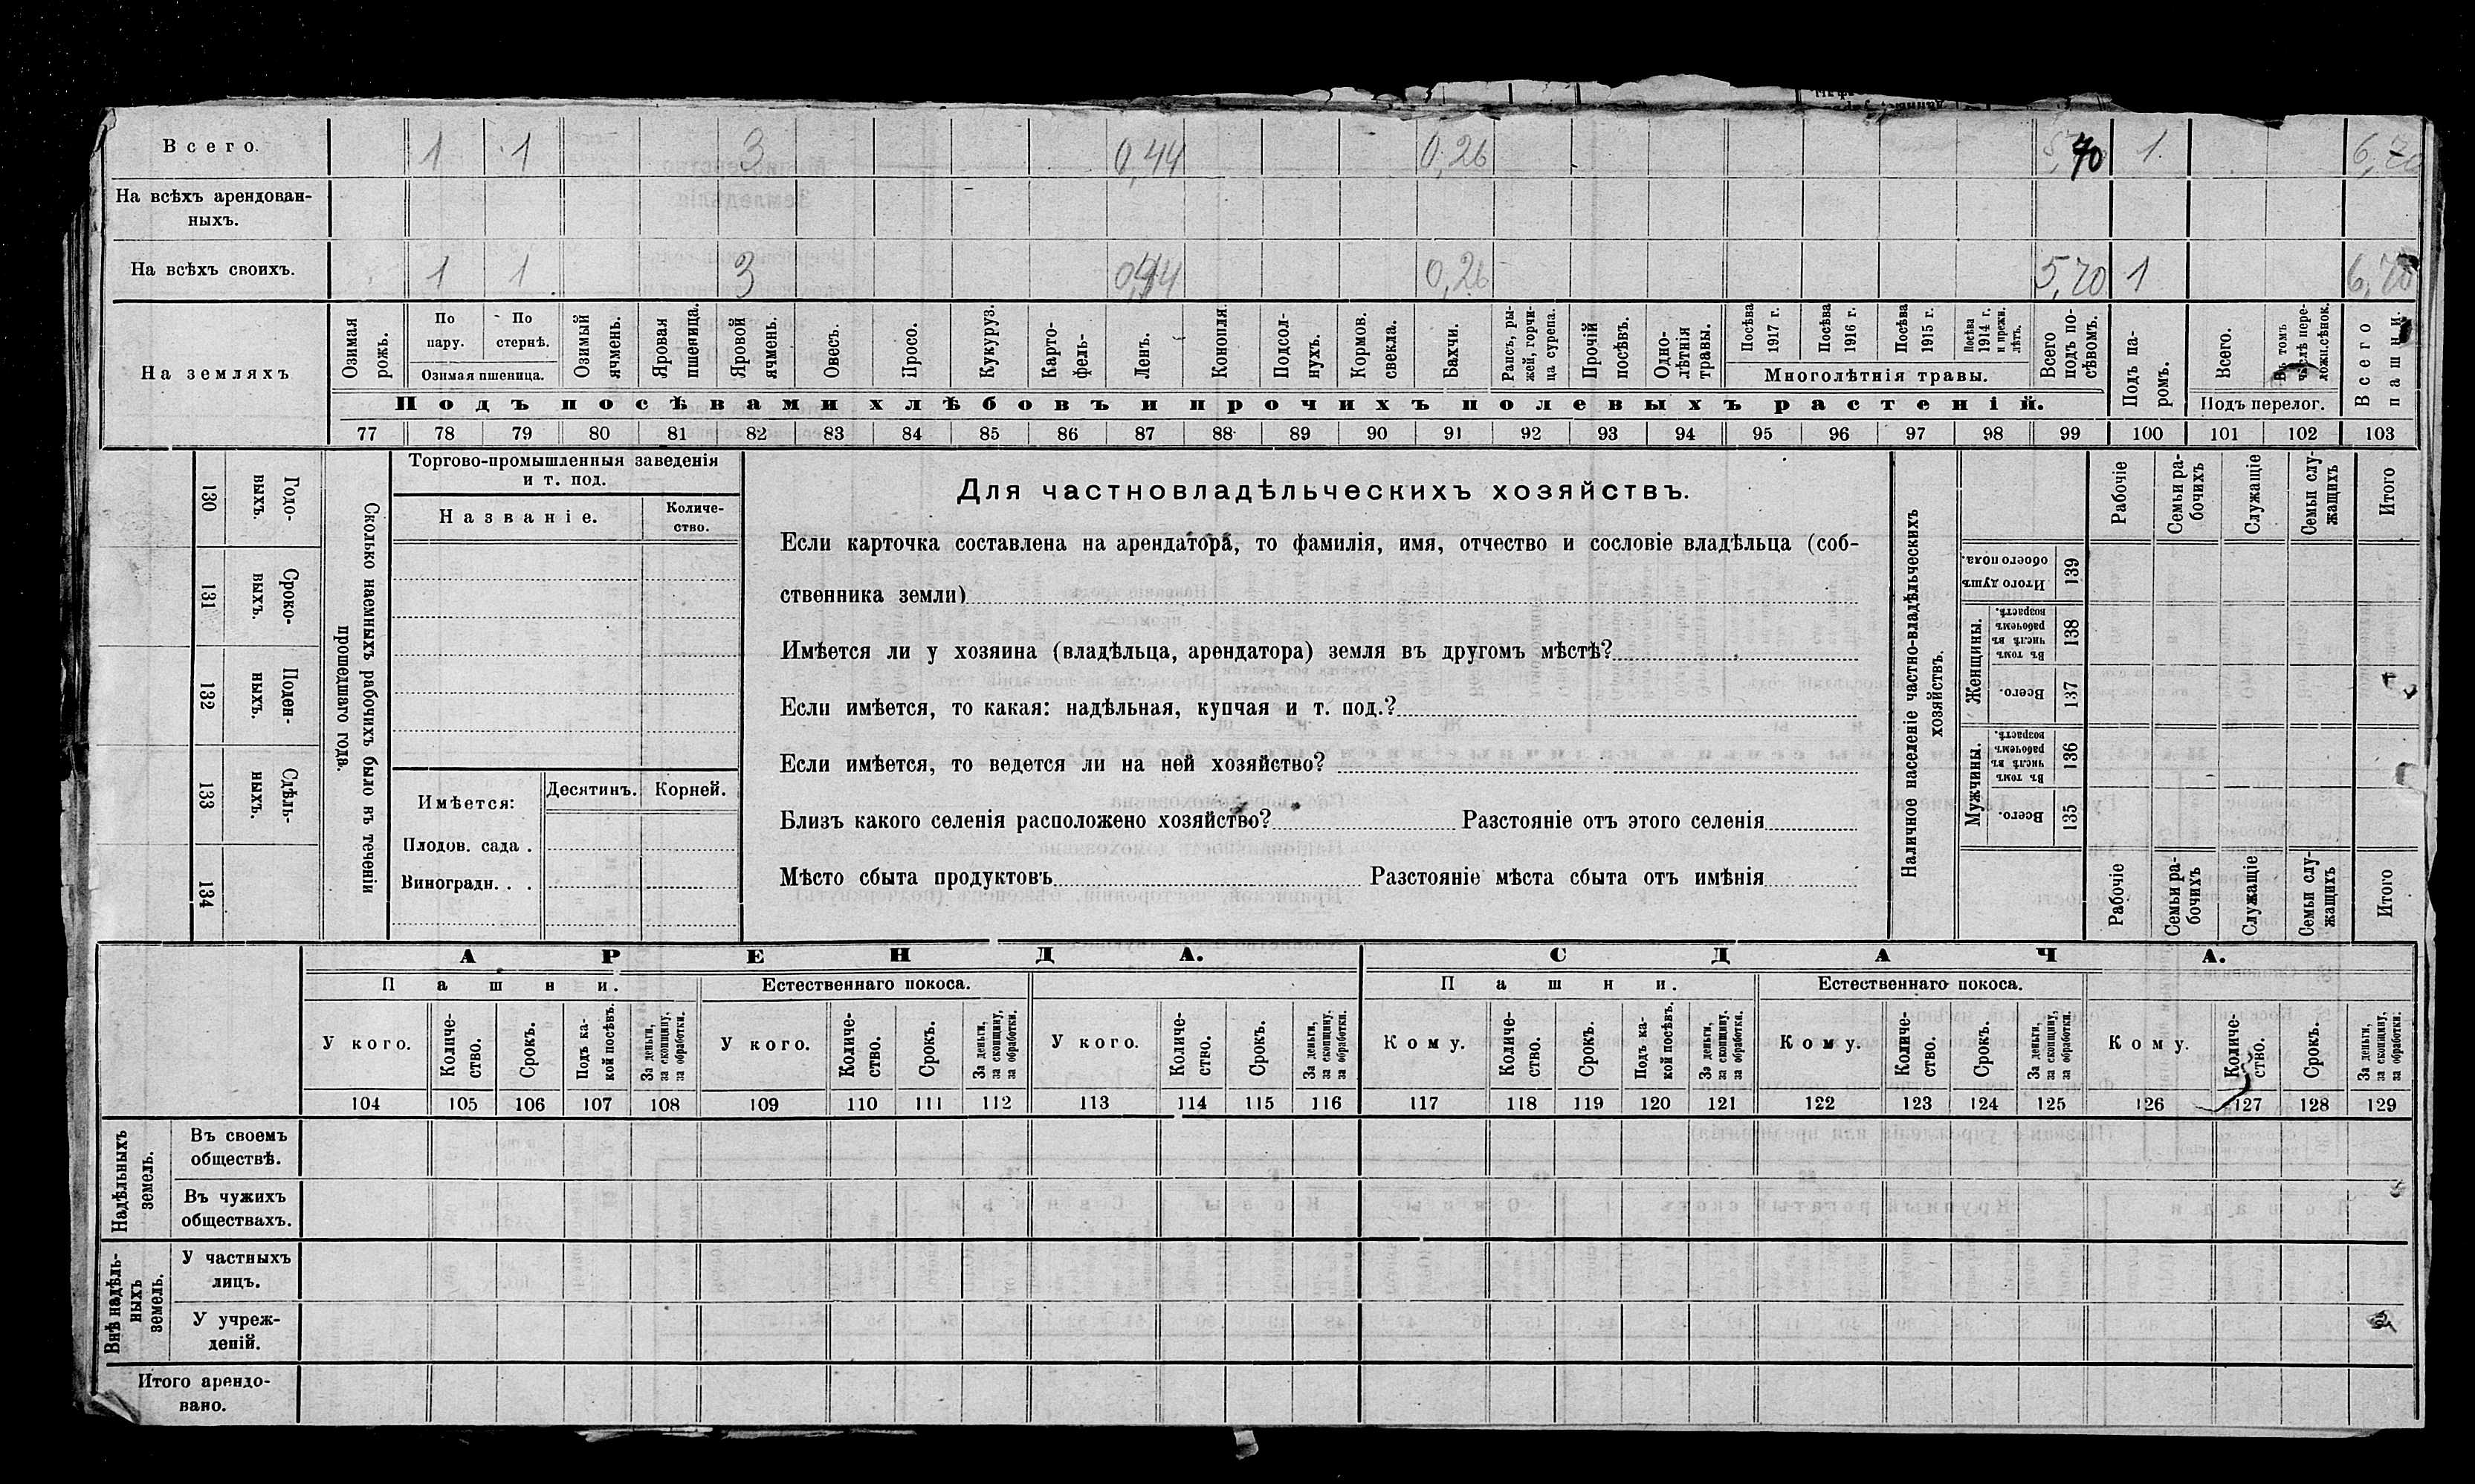 Всего. 1 1 3 0,44 0,26 5,70 1 6,70
На всѣхъ арендован-
ныхъ.
На всѣхъ своихъ. 1 1 3 0,44 0,26 5,70 1 6,70
На земляхъ
Озимая рожь.
По пару.
По стернѣ.
Озимая пшеница.
Озимый ячмень.
Яровая пшеница.
Яровой ячмень.
Овесъ.
Просо.
Кукуруз.
Карто-
фель-
Ленъ.
Конопля.
Подсол-
нухъ.
Кормов.
свекла.
Бахчи.
Рапсъ, ры-
жей, горчи-
ца сурепа.
Прочій
посѣвъ.
Одно-
лѣтнія
травы.
Посѣва
1917 г.
Посѣва
1916 г.
Посѣва
1915 г.
Посѣва
1914 г.
и прежн.
лѣтъ.
Многолѣтнія травы.
Всего
подъ по-
сѣвомъ.
Подъ па-
ромъ.
Всего.
Въ томъ
числѣ пере-
ложн.сѣнок.
Подъ перелог.
Всего
пашни.
Подъ посѣвами хлѣбовъ и прочихъ полевыхъ растеній.
77 78 79 80 81 82 83 84 85 86 87 88 89 90 91 92 93 94 95 96 97 98 99 100 101 102 103
130 Годо-
выхъ.
131 Сроко-
выхъ.
132 Поден-
ныхъ.
133 Сдѣль-
ныхъ.
134
Сколько наемныхъ рабочихъ было въ теченіи
прошедшаго года.
Торгово-промышленныя заведенія
и т. под.
Названіе.
Количе-
ство.
Имѣется:
Десятинъ. Корней.
Плодов. сада .
Виноградн. . .
Для частновладѣльческихъ хозяйствъ.
Если карточка составлена на арендатора, то фамилія, имя, отчество и сословіе владѣльца (соб-
ственника земли)
Имѣется ли у хозяина (владѣльца, арендатора) земля въ другомъ мѣстѣ?
Если имѣется, то какая: надѣльная, купчая и т. под.?
Если имѣется, то ведется ли на ней хозяйство?
Близъ какого селенія расположено хозяйство? Разстояніе отъ этого селенія
Мѣсто сбыта продуктовъ Разстояніе мѣста сбыта отъ имѣнія
Наличное населеніе частно-владѣльческихъ
хозяйствъ.
Рабочіе
Семьи ра-
бочихъ
Служащіе
Семьи слу-
жащихъ
Итого
Итого душъ
обоего пола.
139
Женщины.
Въ томъ
числѣ въ
рабочемъ
возрастѣ.
138
Всего.
137
Мужчины.
Въ томъ
числѣ въ
рабочемъ
возрастѣ.
136
Всего.
135
Рабочіе
Семьи ра-
бочихъ
Служащіе
Семьи слу-
жащихъ
Итого
АРЕНДА. СДАЧА.
Пашни. Естественнаго покоса. Пашни. Естественнаго покоса.
У кого.
Количе-
ство.
Срокъ.
Подъ ка-
кой посѣвъ.
За деньги,
за скопщину,
за обработки.
У кого.
Количе-
ство.
Срокъ.
За деньги,
за скопщину,
за обработки.
У кого.
Количе-
ство.
Срокъ.
За деньги,
за скопщину,
за обработки.
Кому.
Количе-
ство.
Срокъ.
Подъ ка-
кой посѣвъ.
За деньги,
за скопщину,
за обработки.
Кому.
Количе-
ство.
Срокъ.
За деньги,
за скопщину,
за обработки.
Кому.
Количе-
ство.
Срокъ.
За деньги,
за скопщину,
за обработки.
104 105 106 107 108 109 110 111 112 113 114 115 116 117 118 119 120 121 122 123 124 125 126 127 128 129
Надѣльныхъ
земель.
Въ своемъ
обществѣ.
Въ чужихъ
обществахъ.
Внѣ надѣль-
ныхъ
земель.
У частныхъ
лицъ.
У учреж-
деній.
Итого арендо-
вано.